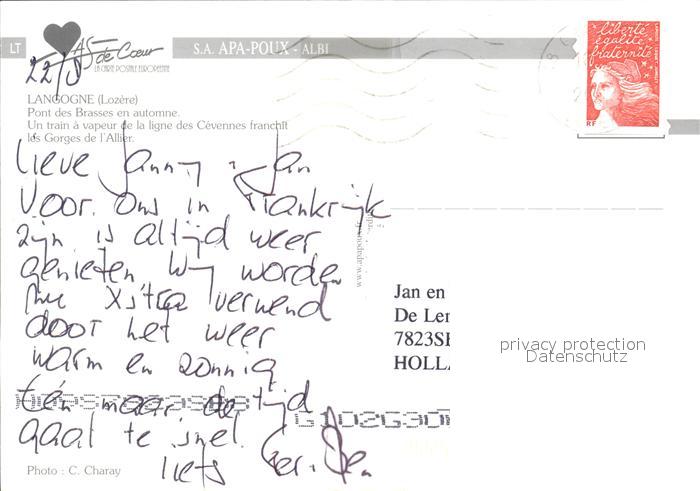 LT
AS de Cœur
LA CARTE POSTALE EUROPÉENNE
S.A. APA-POUX - ALBI
liberté
égalité
fraternité
RF
22/
LANGOGNE (Lozère)
Pont des Brasses en automne.
Un train à vapeur de la ligne des Cévennes franchit
les Gorges de l'Allier.
Lieve Janny Jan
Voor ons in Frankrijk
zijn is altijd weer
genieten. Wij worden
nu xstra verwend
door het weer
warm en zonnig
Eén maar de tijd
gaat te snel.
liefs Ger
Jan en
De Ler
7823SE
HOLLA
privacy protection
Datenschutz
Photo : C. Charay